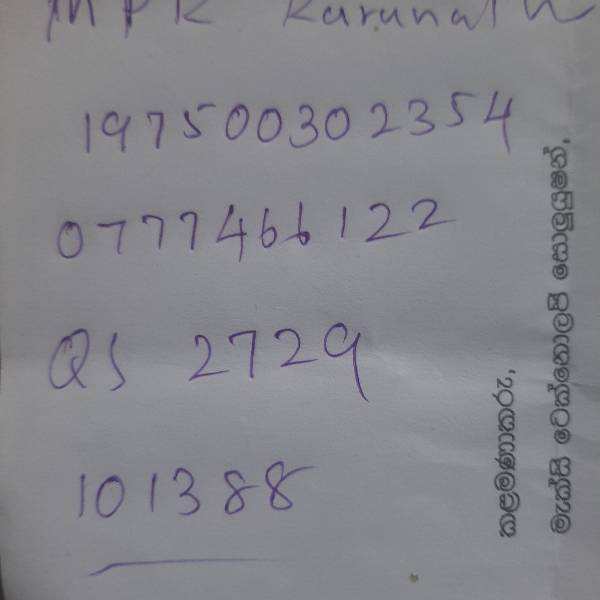 MPK Karunath
197500302354
0777466122
QS 2729
101388
කළමණාකරු,
මැක්සි ටෙක්නොලජි සොලුෂන්,